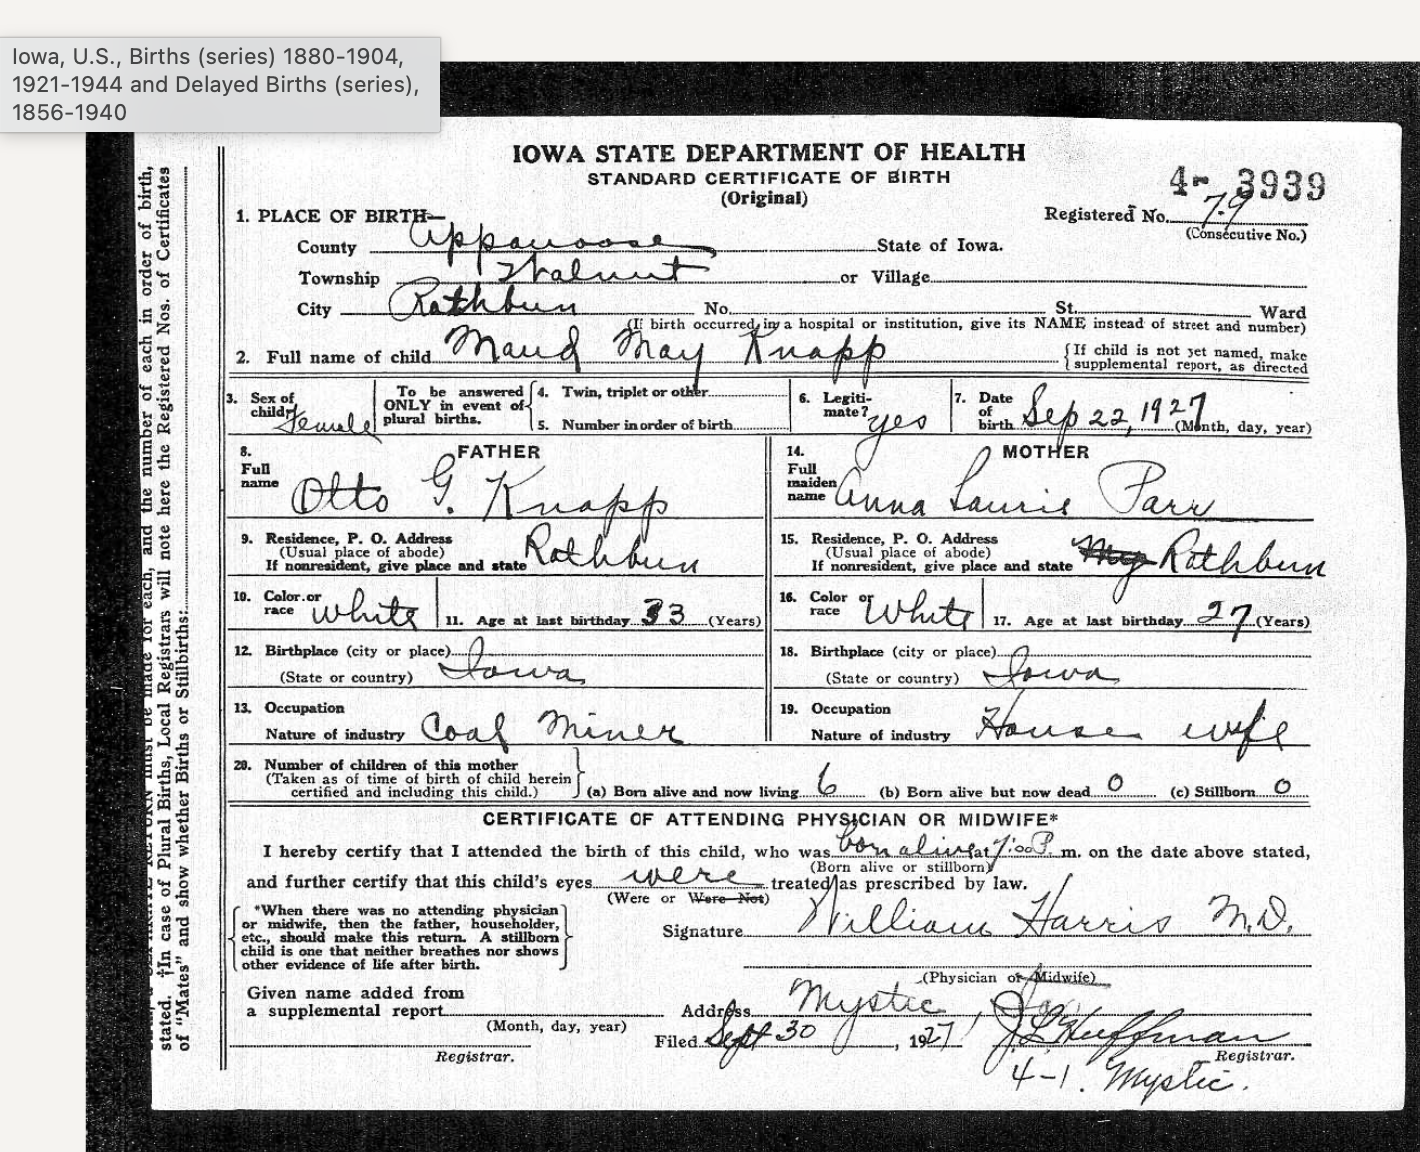 Iowa, U.S., Births (series) 1880-1904,
1921-1944 and Delayed Births (series),
1856-1940
IOWA STATE DEPARTMENT OF HEALTH
STANDARD CERTIFICATE OF BIRTH
(Original)
4- 3939
Registered No. 79
(Consecutive No.)
1. PLACE OF BIRTH—
County Appanoose State of Iowa.
Township Walnut or Village
City Rathbun No. St. Ward
(If birth occurred in a hospital or institution, give its NAME instead of street and number)
2. Full name of child Maud May Knapp {If child is not yet named, make
supplemental report, as directed
3. Sex of child? Female
To be answered ONLY in event of plural births.
4. Twin, triplet or other
5. Number in order of birth
6. Legitimate? yes
7. Date of birth Sep 22, 1927 (Month, day, year)
8. FATHER
Full name Otto G. Knapp
9. Residence, P. O. Address
(Usual place of abode)
If nonresident, give place and state Rathbun
10. Color or race white 11. Age at last birthday 33 (Years)
12. Birthplace (city or place)
(State or country) Iowa
13. Occupation
Nature of industry Coal Miner
14. MOTHER
Full maiden name Anna Laurie Parr
15. Residence, P. O. Address
(Usual place of abode)
If nonresident, give place and state Rathbun
16. Color or race White 17. Age at last birthday 27 (Years)
18. Birthplace (city or place)
(State or country) Iowa
19. Occupation
Nature of industry House wife
20. Number of children of this mother
(Taken as of time of birth of child herein
certified and including this child.) (a) Born alive and now living 6 (b) Born alive but now dead 0 (c) Stillborn 0
CERTIFICATE OF ATTENDING PHYSICIAN OR MIDWIFE*
I hereby certify that I attended the birth of this child, who was born alive at 7:00 P. m. on the date above stated,
(Born alive or stillborn)
and further certify that this child's eyes were treated as prescribed by law.
(Were or Were Not)
*When there was no attending physician
or midwife, then the father, householder,
etc., should make this return. A stillborn
child is one that neither breathes nor shows
other evidence of life after birth.
Signature William Harris M.D.
(Physician or Midwife)
Given name added from
a supplemental report
(Month, day, year)
Registrar.
Address Mystic, Ia
Filed Sept 30, 1927 J L Huffman
Registrar.
4-1. Mystic.
must be made for each, and the number of each in order of birth,
stated. †In case of Plural Births, Local Registrars will note here the Registered Nos. of Certificates
of "Mates" and show whether Births or Stillbirths: